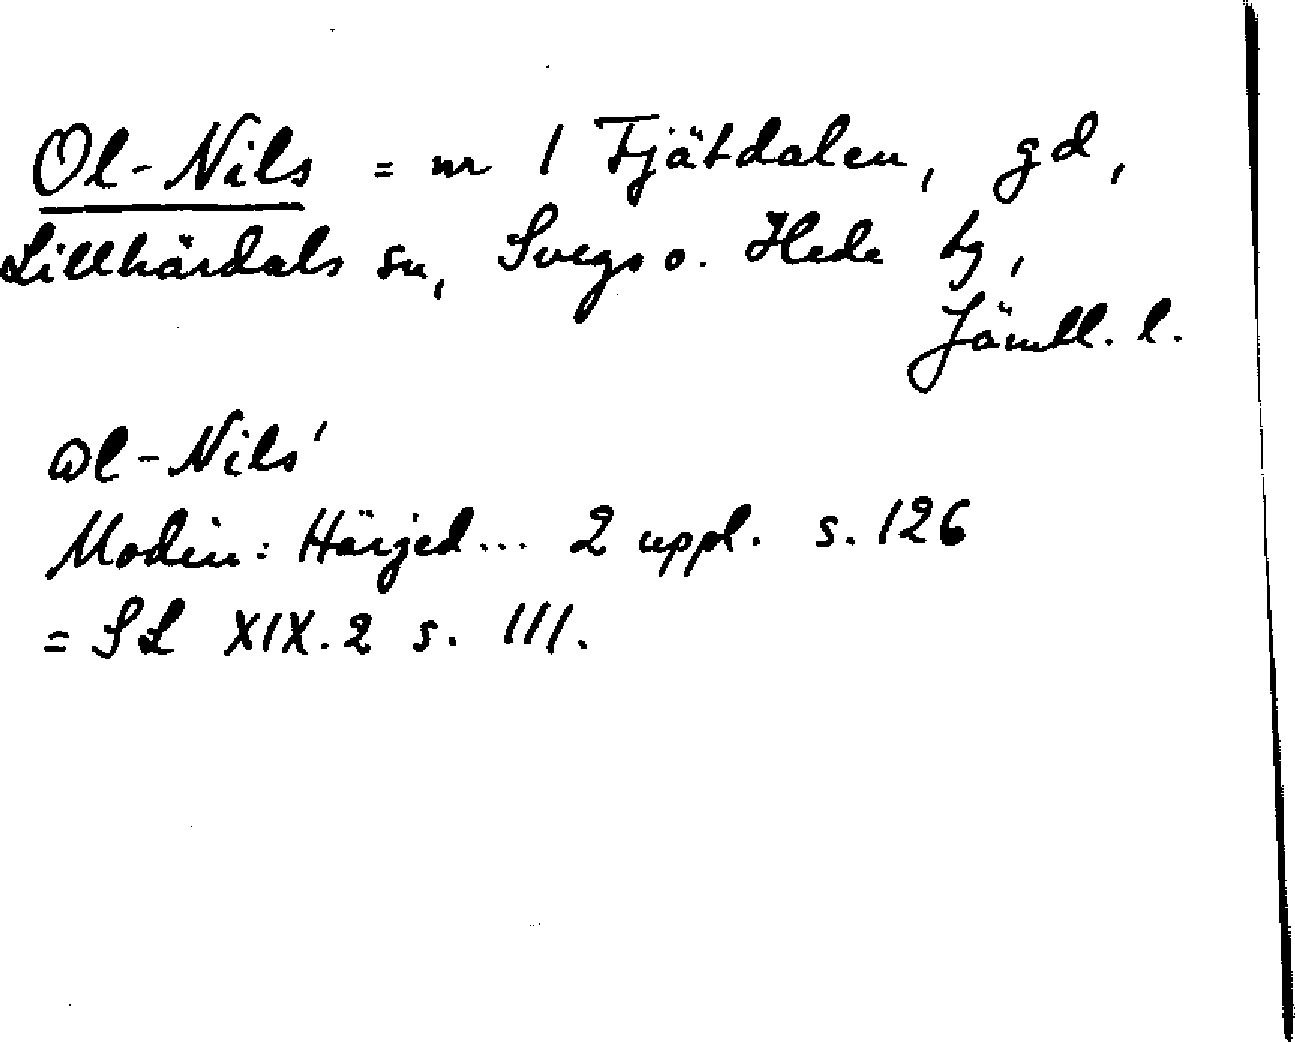 Ol-Nils = nr 1 Tjätdalen, gd,
Lillhärdals sn, Svegs o. Hede tg,
Jämtl. l.
ɷl-Nils'
Modin: Härjed... 2 uppl. s. 126
= SL XIX.2 s. 111.